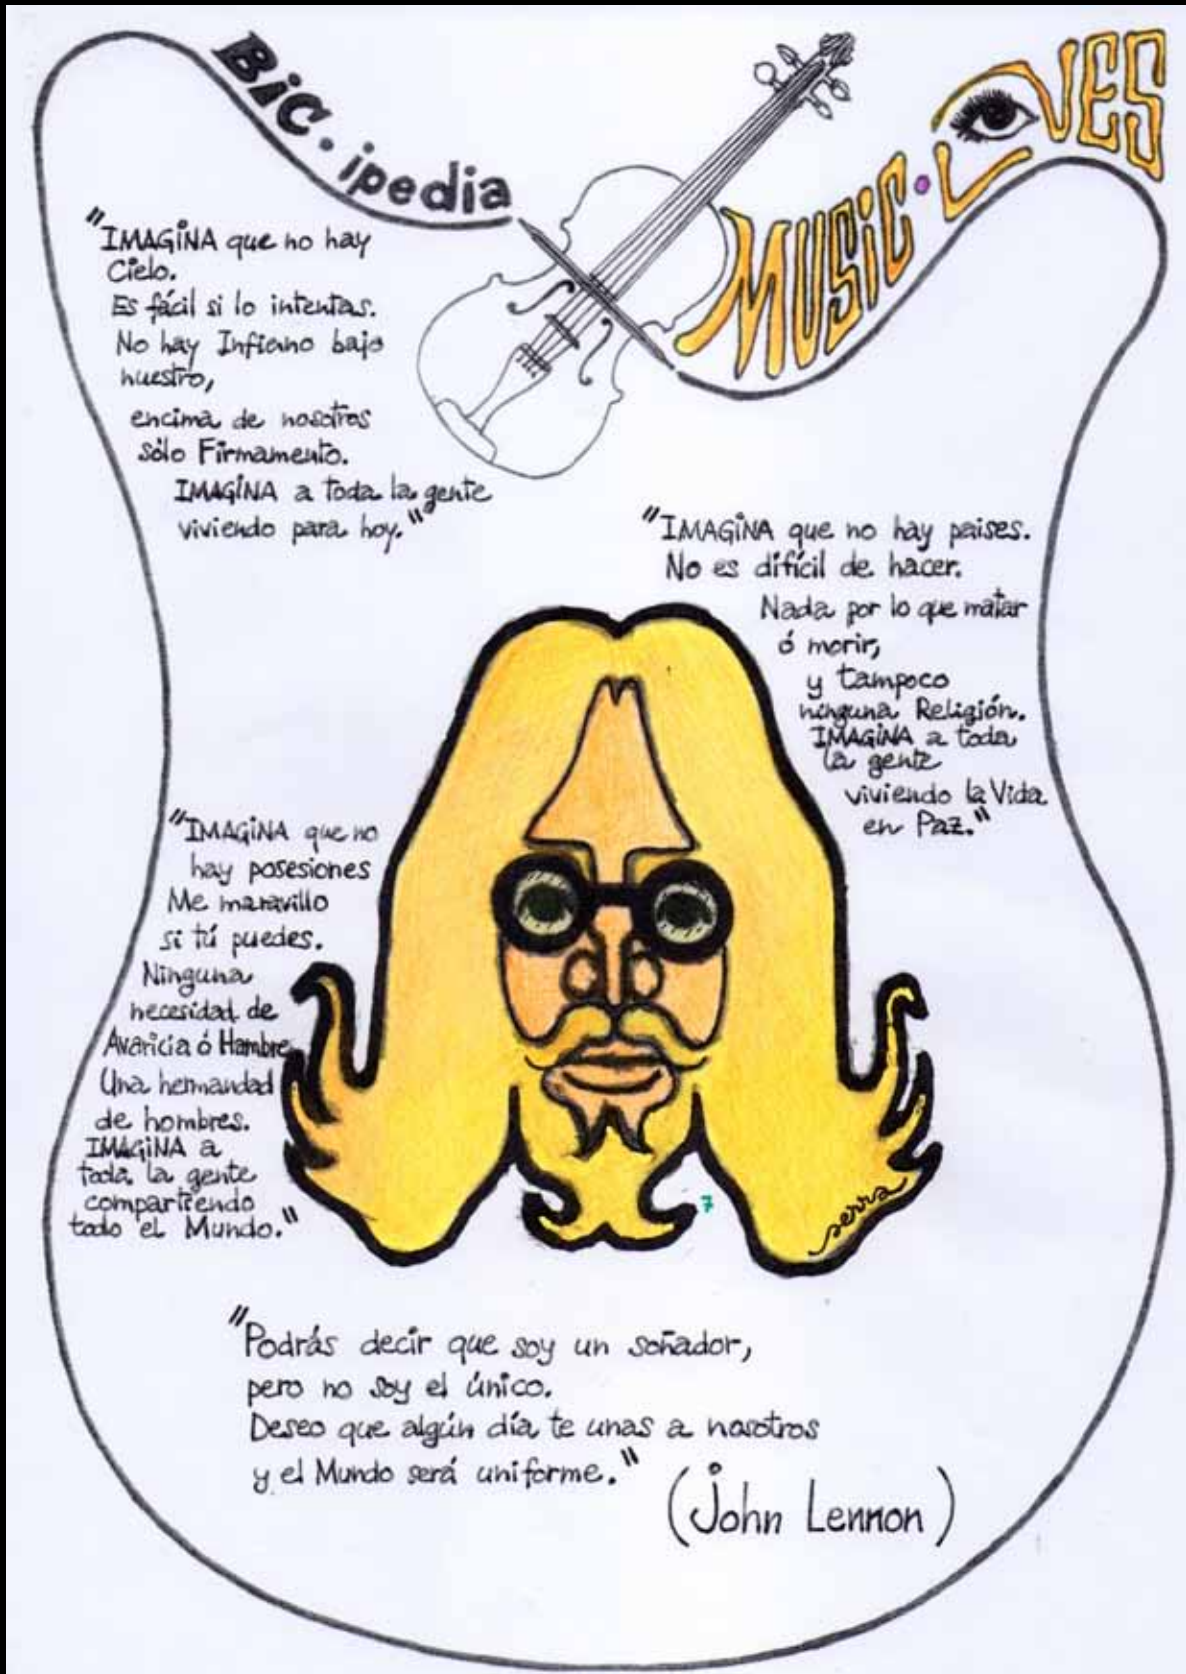 BiC·ipedia
MUSIC·LOVES
"IMAGiNA que no hay
Cielo.
Es fácil si lo intentas.
No hay Infierno bajo
nuestro,
encima de nosotros
sólo Firmamento.
IMAGiNA a toda la gente
viviendo para hoy."
"IMAGiNA que no hay paises.
No es difícil de hacer.
Nada por lo que matar
ó morir,
y tampoco
ninguna Religión.
IMAGiNA a toda
la gente
viviendo la Vida
en Paz."
"IMAGiNA que no
hay posesiones
Me maravillo
si tú puedes.
Ninguna
necesidad de
Avaricia ó Hambre
Una hermandad
de hombres.
IMAGiNA a
toda la gente
compartiendo
todo el Mundo."
7
serra
"Podrás decir que soy un soñador,
pero no soy el único.
Deseo que algún día te unas a nosotros
y el Mundo será uniforme."
(John Lennon)